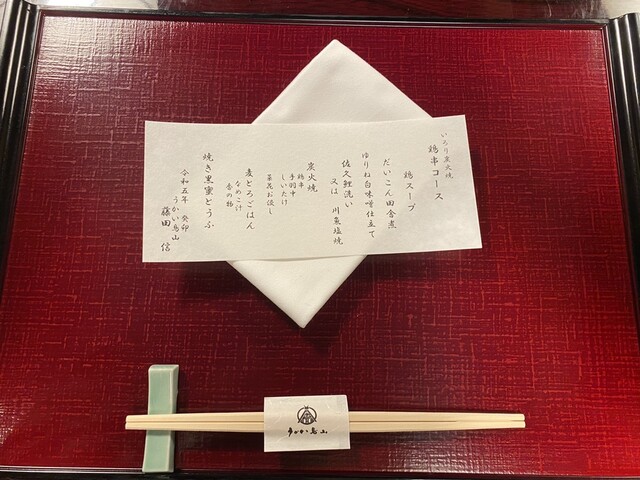 いろり炭火焼
鶏串コース
鶏スープ
だいこん田舎煮
ゆりね白味噌仕立て
佐久鯉洗い
又は 川魚塩焼
炭火焼
鶏串
手羽中
しいたけ
菜花お浸し
麦とろごはん
なめこ汁
香の物
焼き黒蜜どうふ
令和五年 癸卯
うかい鳥山
藤田 信
うかい鳥山